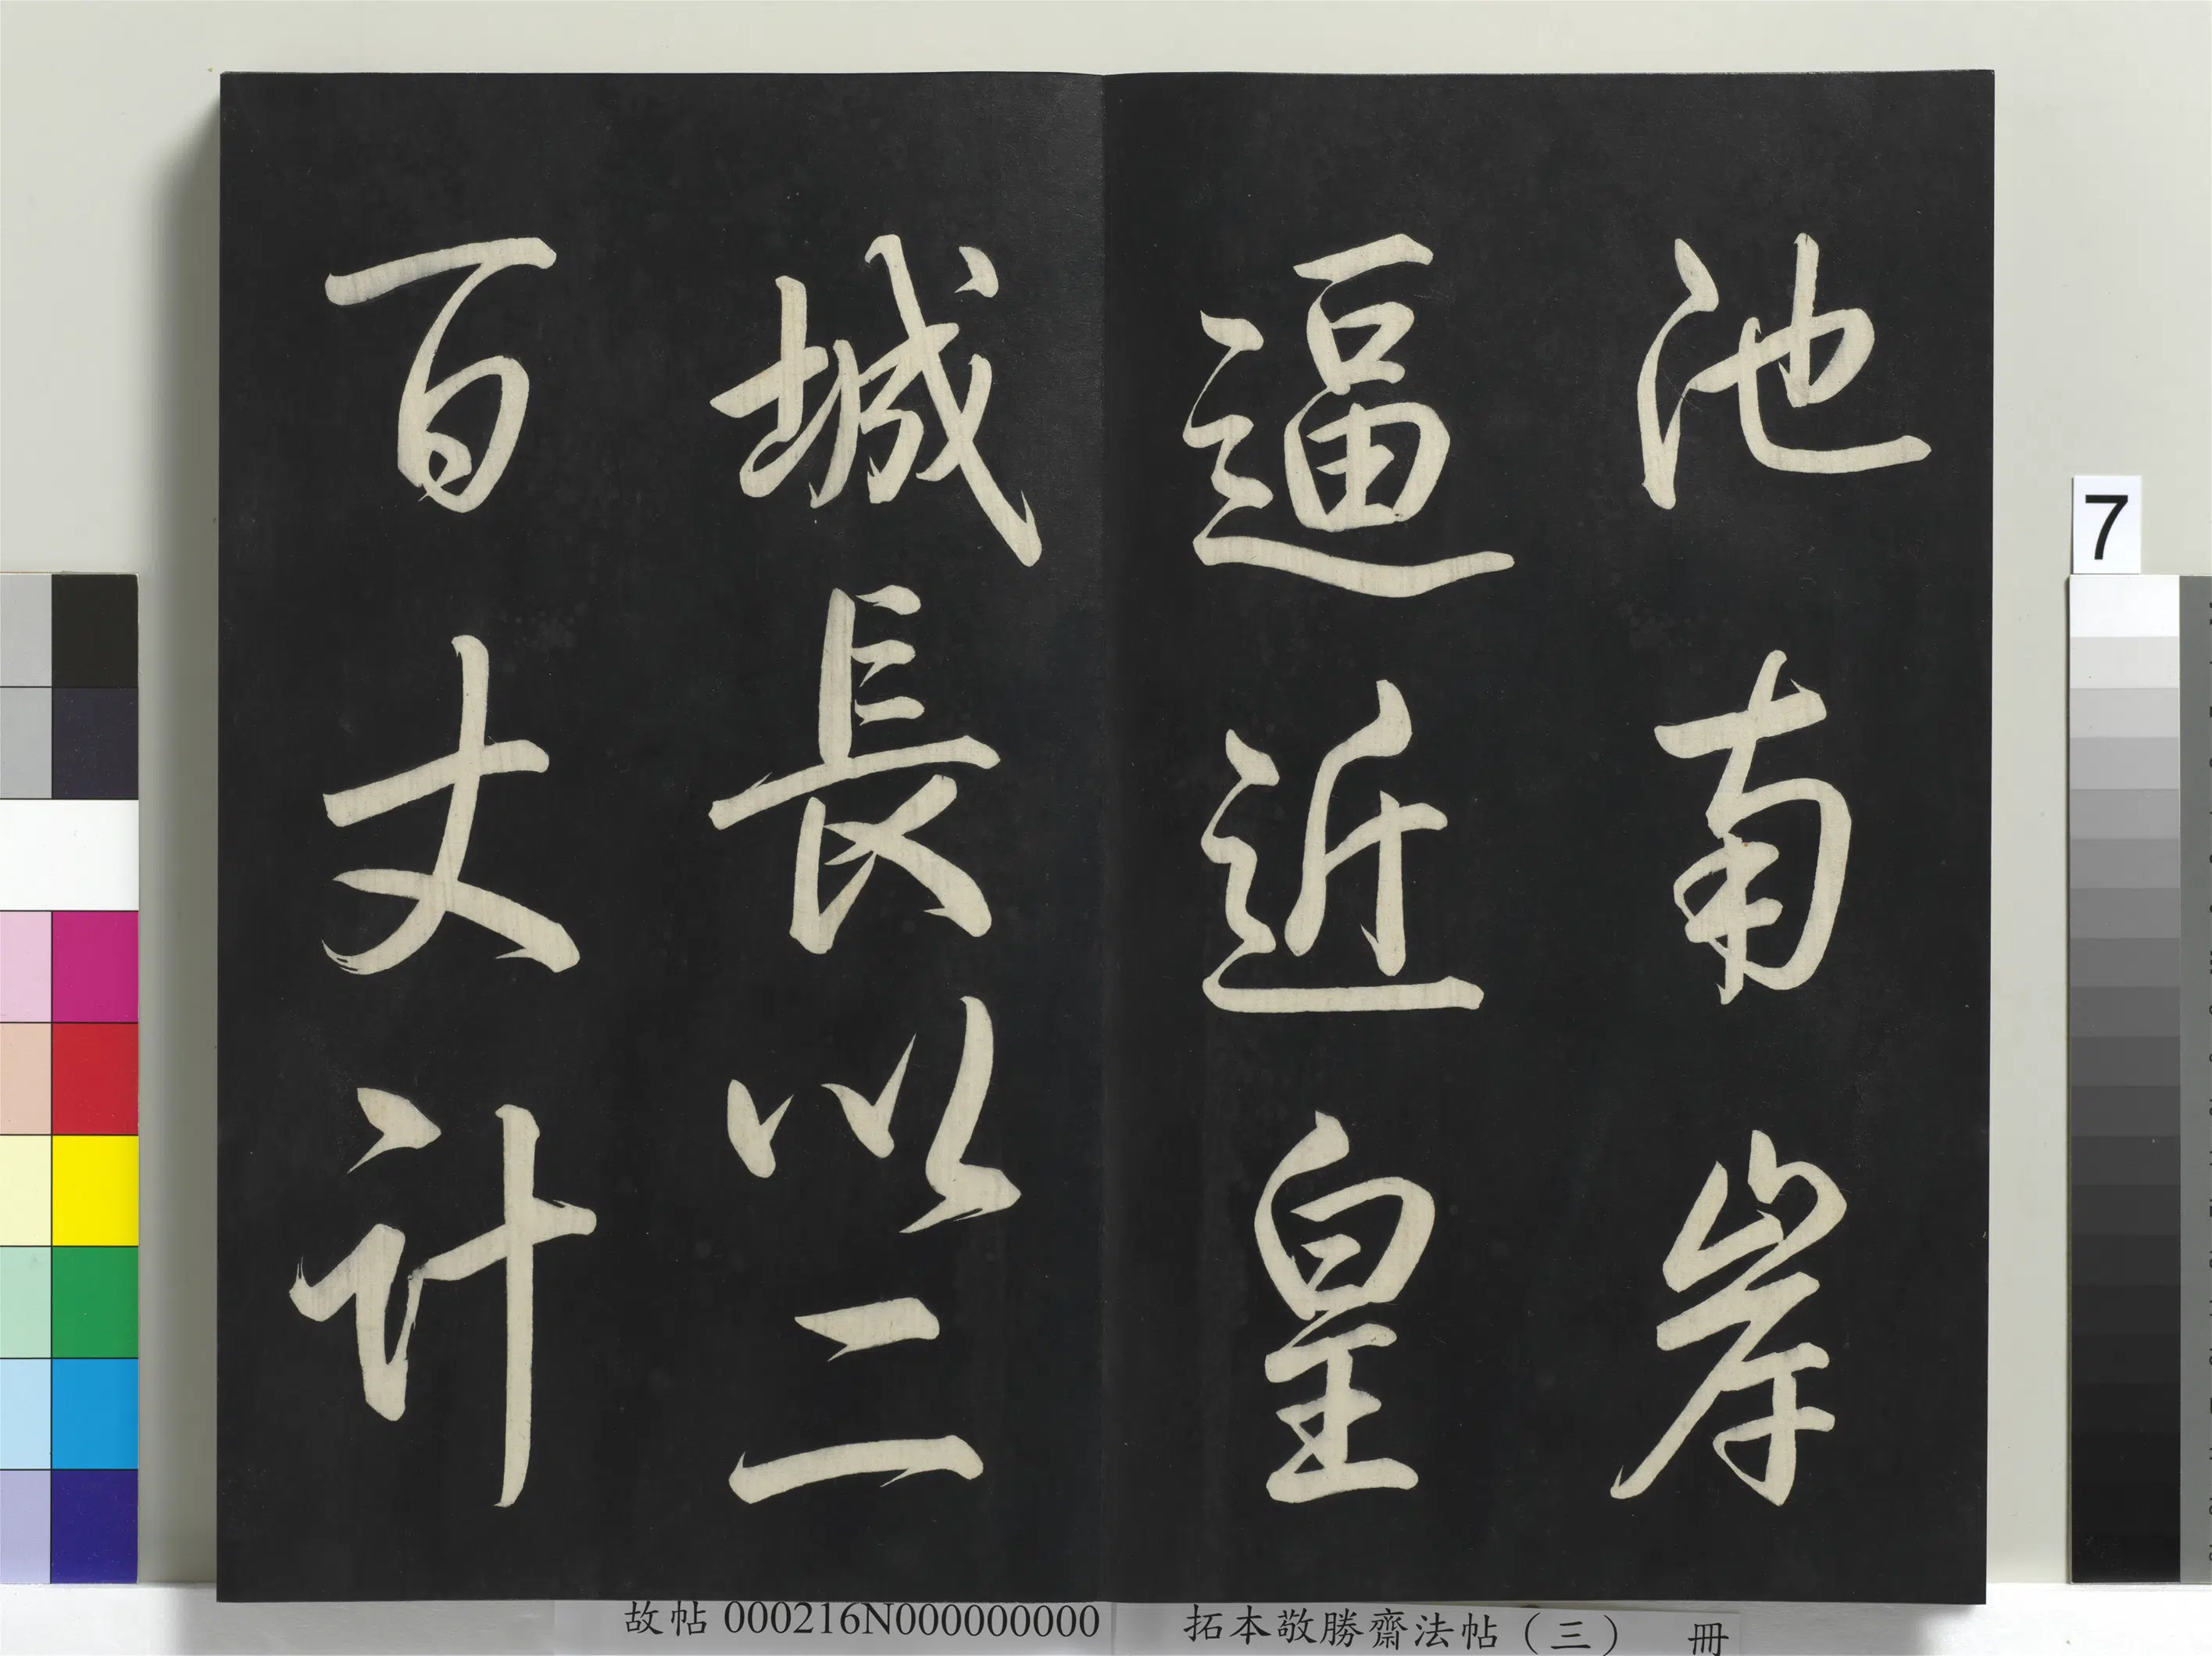 池南岸
逼近皇
城長以二
百丈計
7
故帖 000216N000000000
拓本敬勝齋法帖（三） 冊